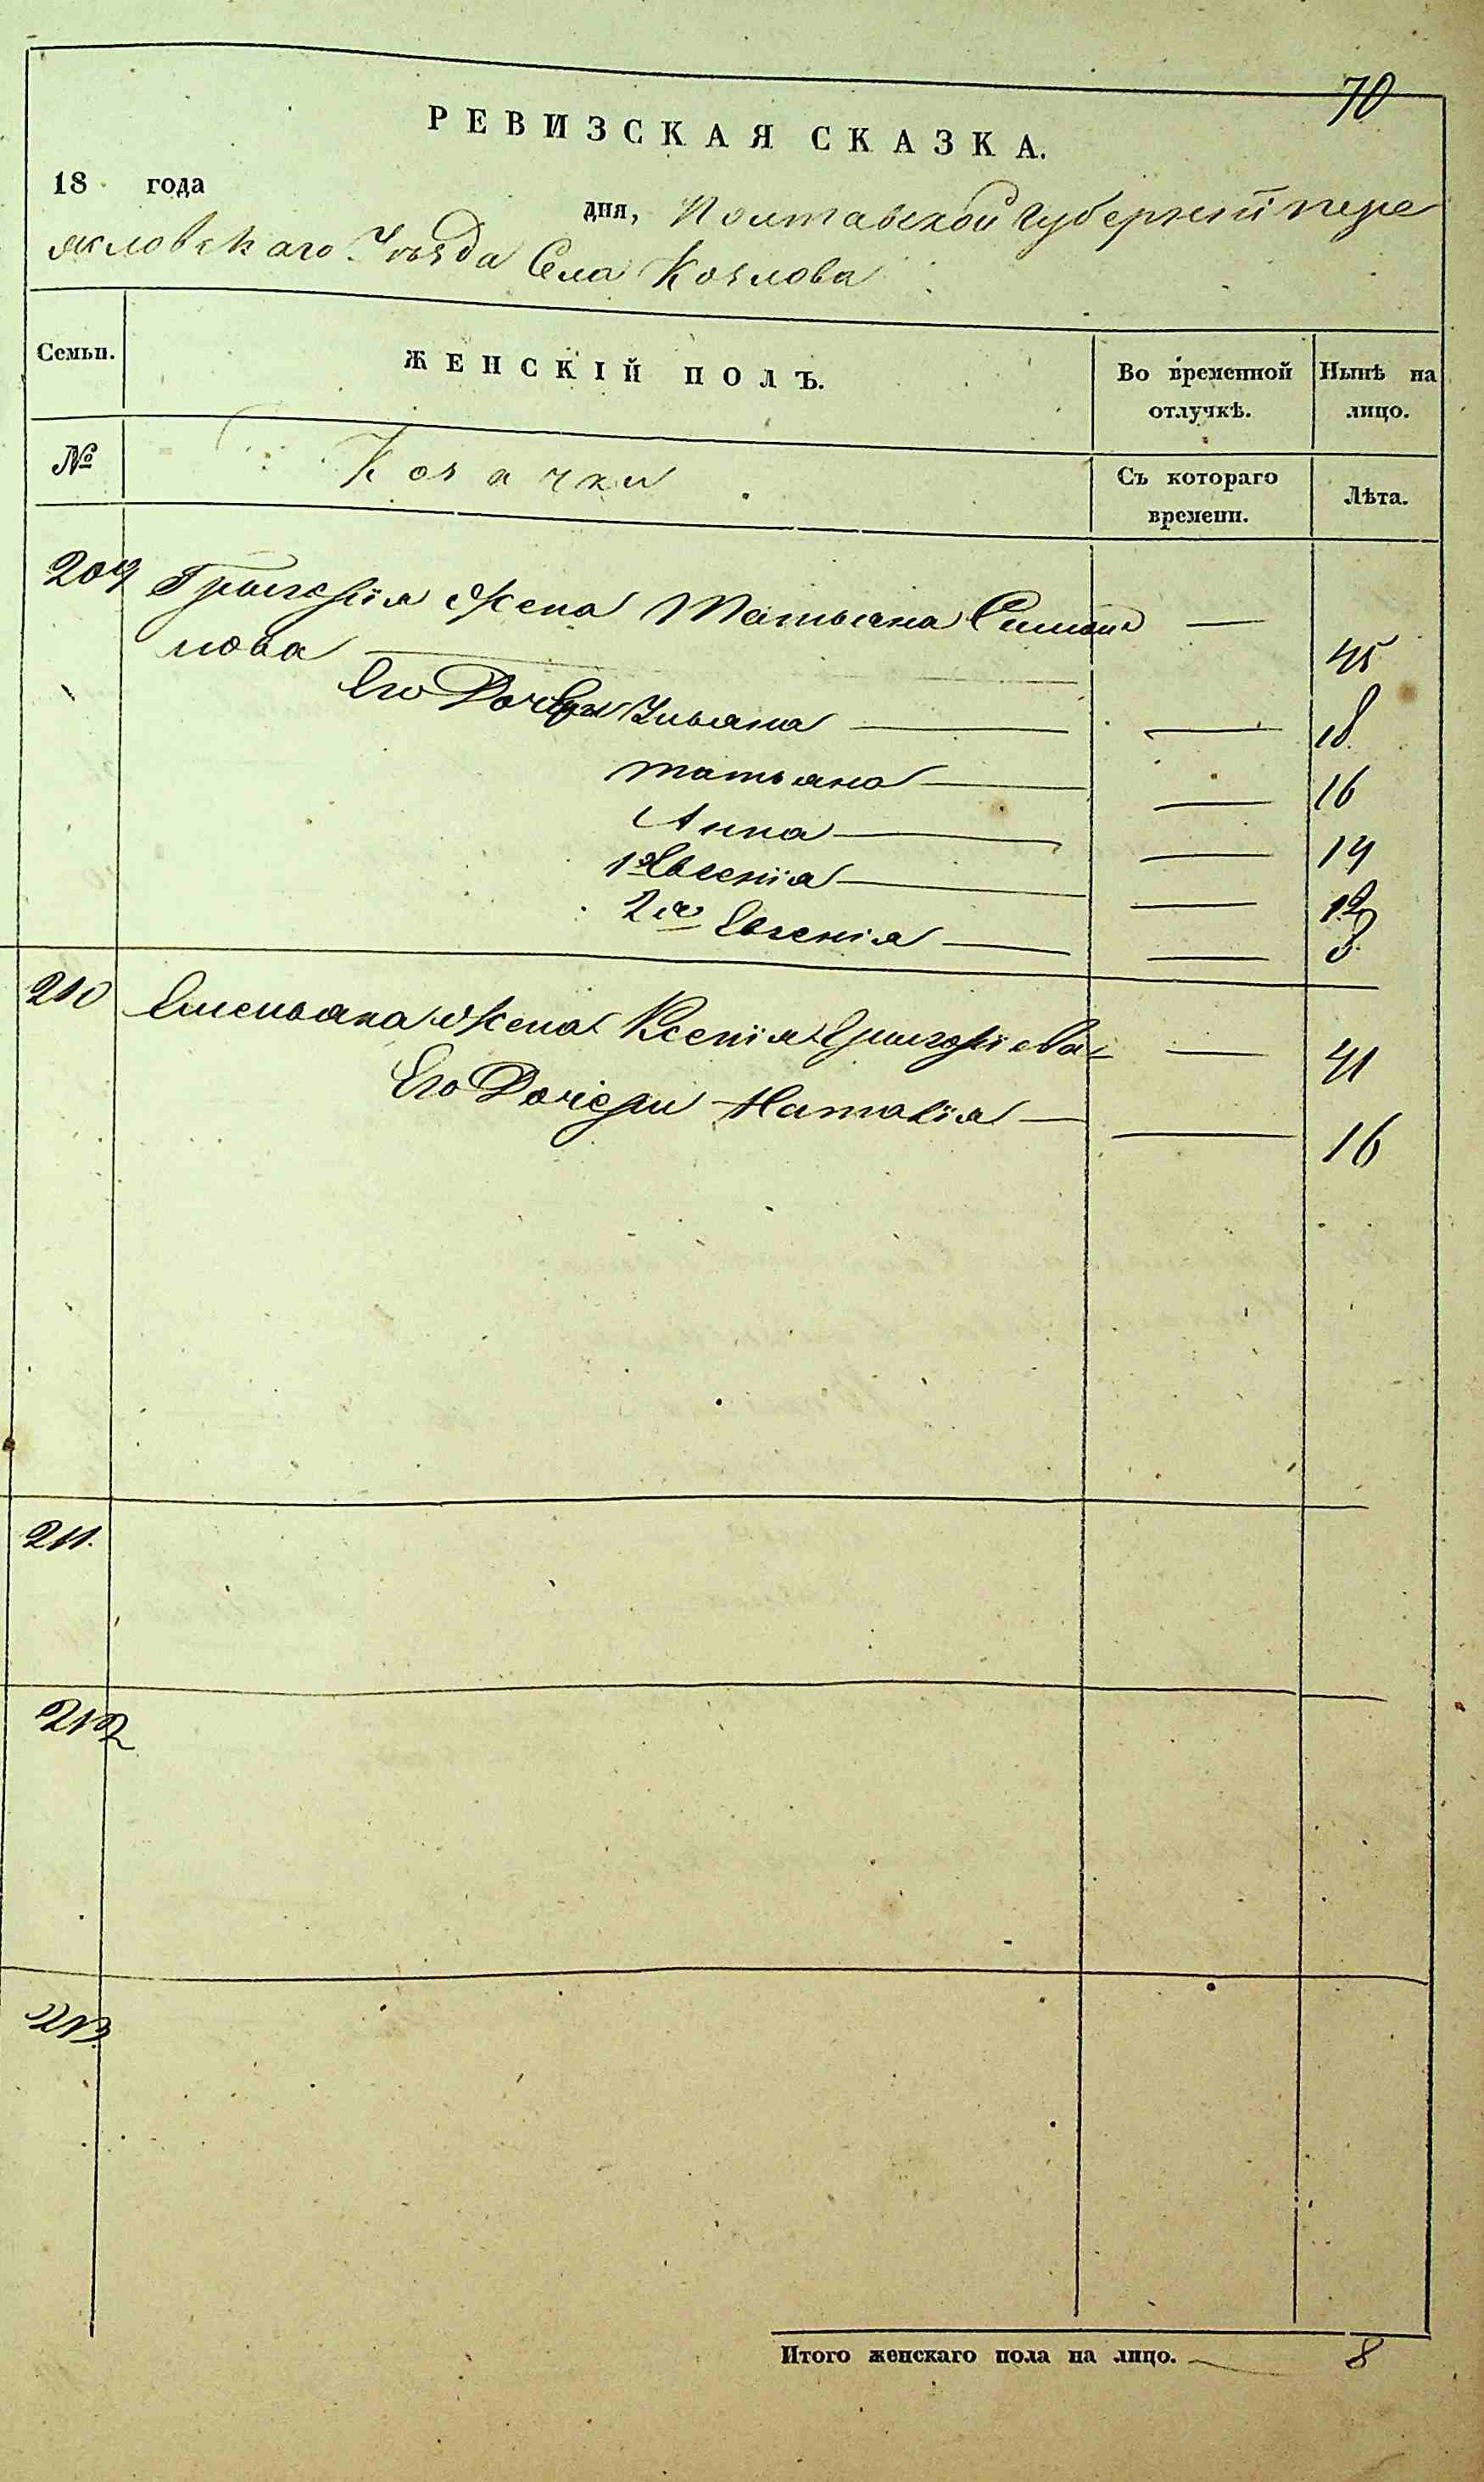 70
РЕВИЗСКАЯ СКАЗКА.
18 года дня, Полтавской Губерніи пере
яславскаго Уѣзда Села Козлова
Семьи. ЖЕНСКІЙ ПОЛЪ. Во временной отлучкѣ. Нынѣ на лицо.
№ Козачки Съ котораго времени. Лѣта.
209 Григорія Жена Татьяна Симо
нова — 45
Его Дочери Ульяна — 18
Татьяна — 16
Анна — 14
1я Евгенія — 12
2я Евгенія — 8
210 Емельяна Жена Ксенія Григоріева — 41
Его Дочери Наталія — 16
211.
212
213.
Итого женскаго пола на лицо. — 8